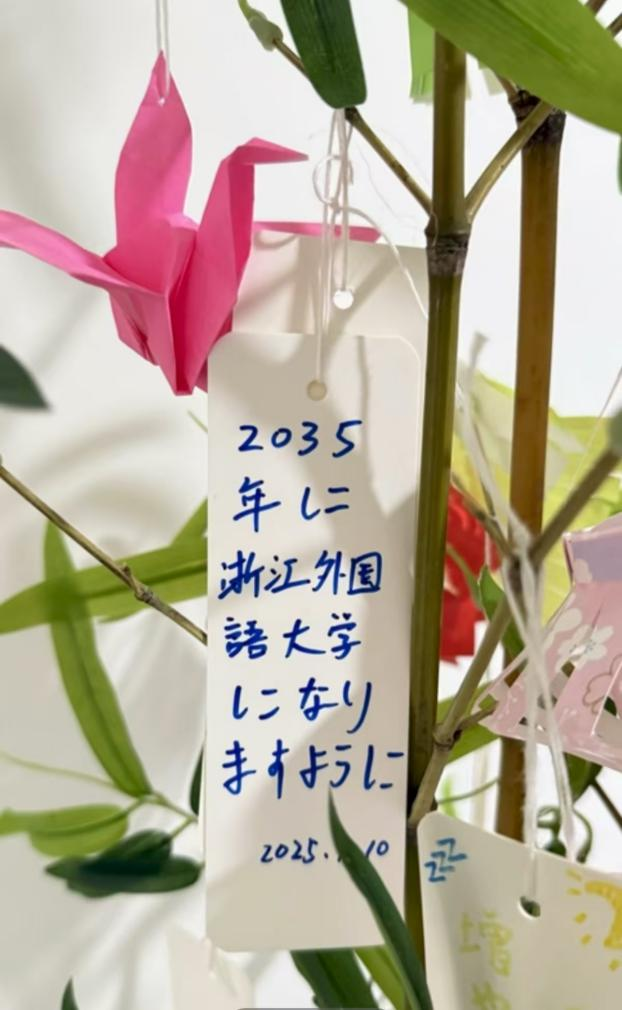 2035
年に
浙江外国
語大学
になり
ますように
2025. 10
zzz
増